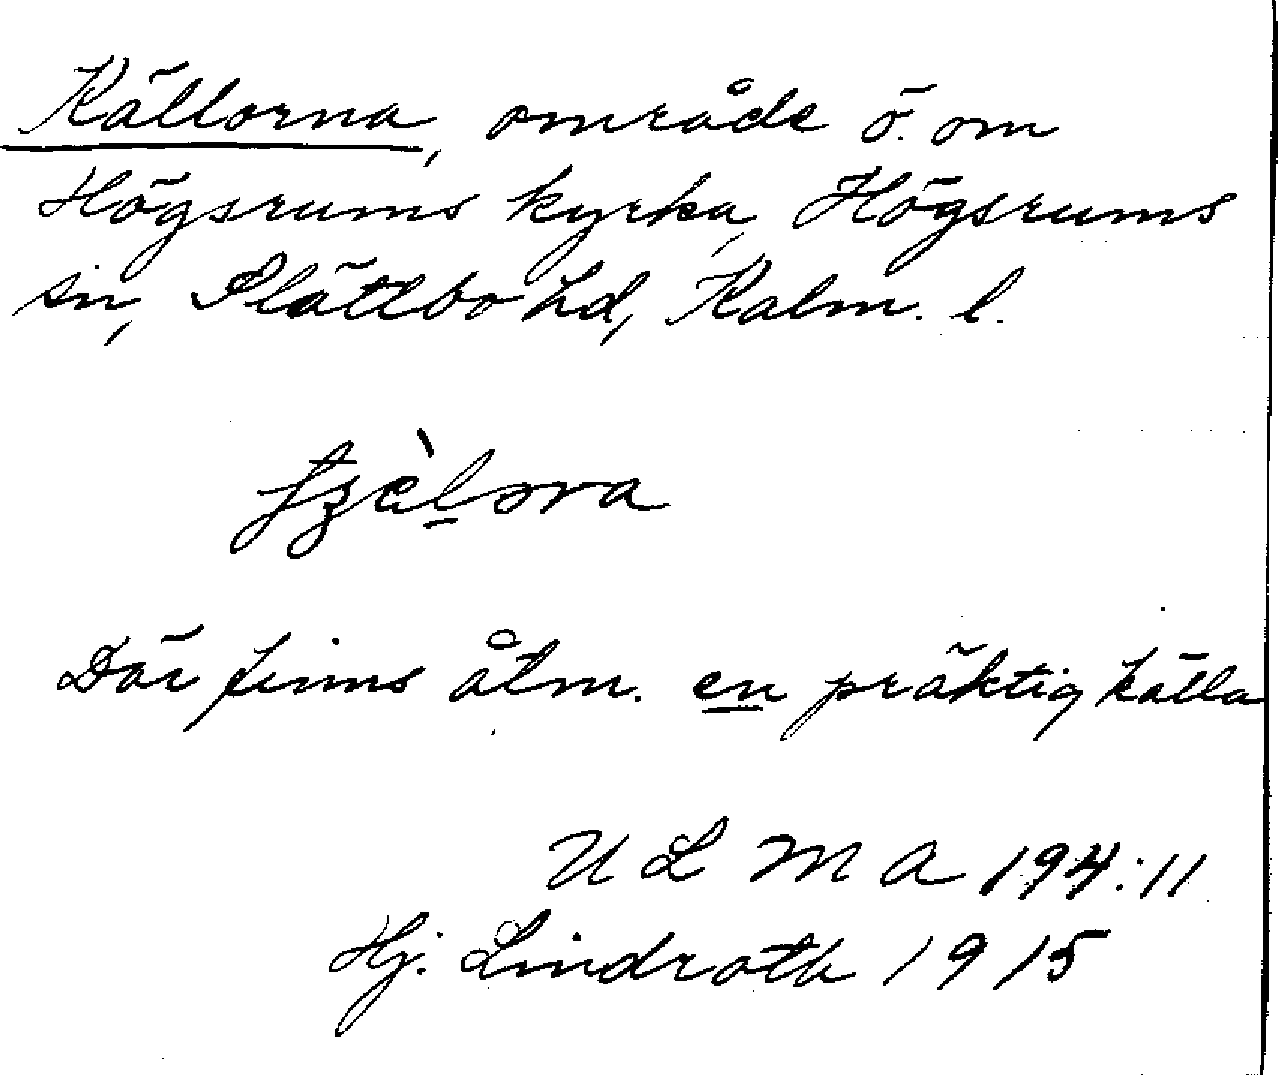 Källorna, område ö. om
Högsrums kyrka, Högsrums
sn, Slättbo hd, Kalm. l.
Där finns åtm. en präktig källa
U L M A 194:11
Hj. Lindroth 1915